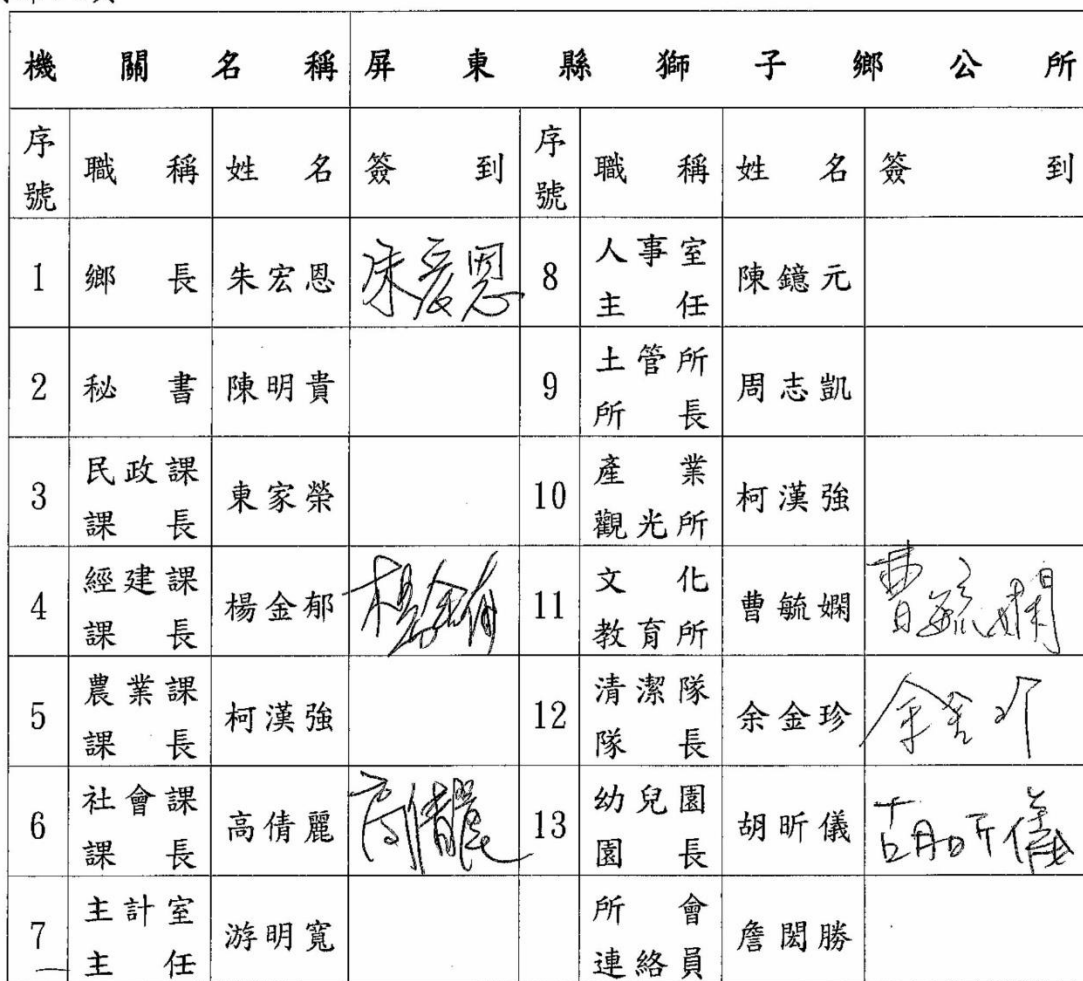 機關名稱 屏東縣獅子鄉公所
序號 職稱 姓名 簽到 序號 職稱 姓名 簽到
1 鄉長 朱宏恩 朱宏恩 8 人事室主任 陳鐿元
2 秘書 陳明貴 9 土管所所長 周志凱
3 民政課課長 東家榮 10 產業觀光所 柯漢強
4 經建課課長 楊金郁 楊金郁 11 文化教育所 曹毓嫻 曹毓嫻
5 農業課課長 柯漢強 12 清潔隊隊長 余金珍 余金珍
6 社會課課長 高倩麗 高倩麗 13 幼兒園園長 胡昕儀 胡昕儀
7 主計室主任 游明寬 所會連絡員 詹閎勝